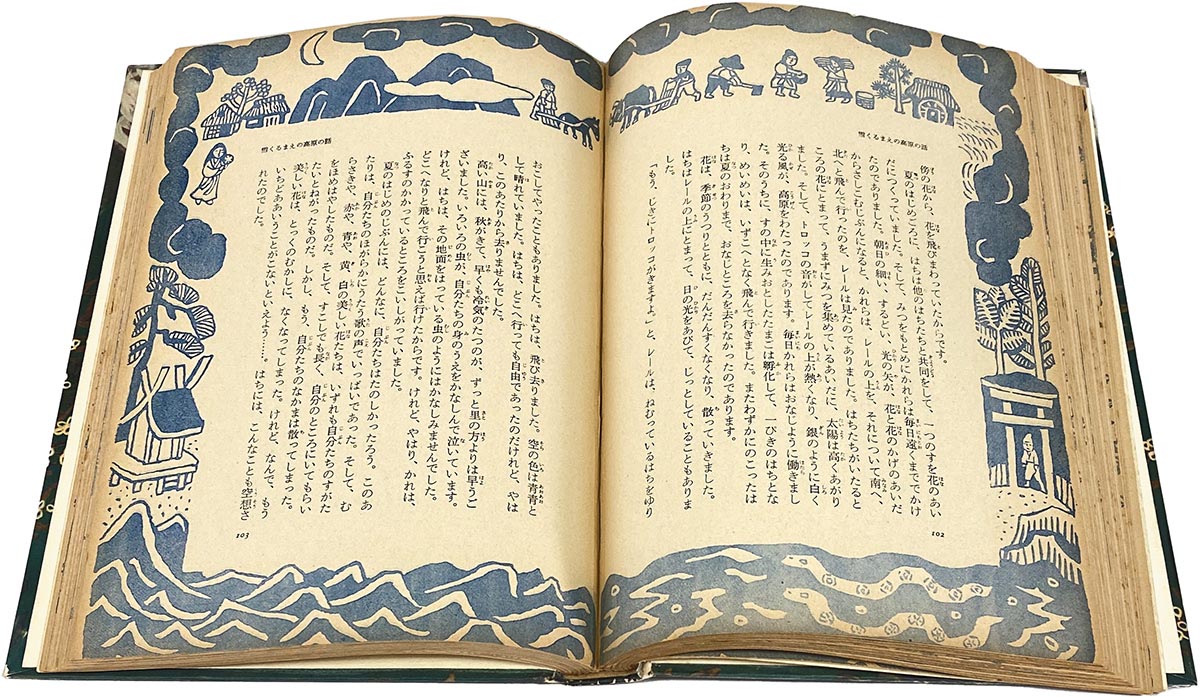 雪くるまえの高原の話
傍の花から、花を飛びまわっていたからです。
夏のはじめごろに、はちは他のはちたちと共同をして、一つのすを花のあい
だにつくっていました。そして、みつをもとめにかれらは毎日遠くまででかけ
たのでありました。朝日の細い、するどい、光の矢が、花と花のかげのあいだ
からさしこむじぶんになると、かれらは、レールの上を、それについて南へ、
北へと飛んで行ったのを、レールは見たのでありました。はちたちがいたると
ころの花にとまって、うまずにみつを集めているあいだに、太陽は高くあがり
ました。そして、トロッコの音がしてレールの上が熱くなり、銀のように白く
光る風が、高原をわたったのであります。毎日かれらはおなじように働きまし
た。そのうちに、すの中に生みおとしたたまごは孵化して、一ぴきのはちとな
り、めいめいは、いずこへとなく飛んで行きました。またわずかにのこったは
ちは夏のおわりまで、おなじところを去らなかったのであります。
花は、季節のうつりとともに、だんだんすくなくなり、散っていきました。
はちはレールの上にとまって、日の光をあびて、じっとしていることもありま
した。
「もう、じきにトロッコがきますよ。」と、レールは、ねむっているはちをゆり
102
雪くるまえの高原の話
おこしてやったこともありました。はちは、飛び去りました。空の色は青青と
して晴れていました。はちは、どこへ行っても自由であったのだけれど、やは
り、このあたりから去りませんでした。
高い山には、秋がきて、早くも冷気のたつのが、ずっと里の方よりは早うご
ざいました。いろいろの虫が、自分たちの身のうえをかなしんで泣いています。
けれど、はちは、その地面をはっている虫のようにはかなしみませんでした。
どこへなりと飛んで行こうと思えば行けたからです。けれど、やはり、かれは、
ふるすのかかっているところをこいしがっていました。
夏のはじめのじぶんには、どんなに、自分たちはたのしかったろう。このあ
たりは、自分たちのほがらかにうたう歌の声でいっぱいであった。そして、む
らさきや、赤や、青や、黄、白の美しい花たちは、いずれも自分たちのすがた
をほめはやしたものだ。そして、すこしでも長く、自分のところにいてもらい
たいとねがったものだ。しかし、もう、自分たちのなかまは散ってしまった。
美しい花は、とっくのむかしに、なくなってしまった。けれど、なんで、もう
いちどああいうことがこないといえよう……。はちには、こんなことも空想さ
れたのでした。
103